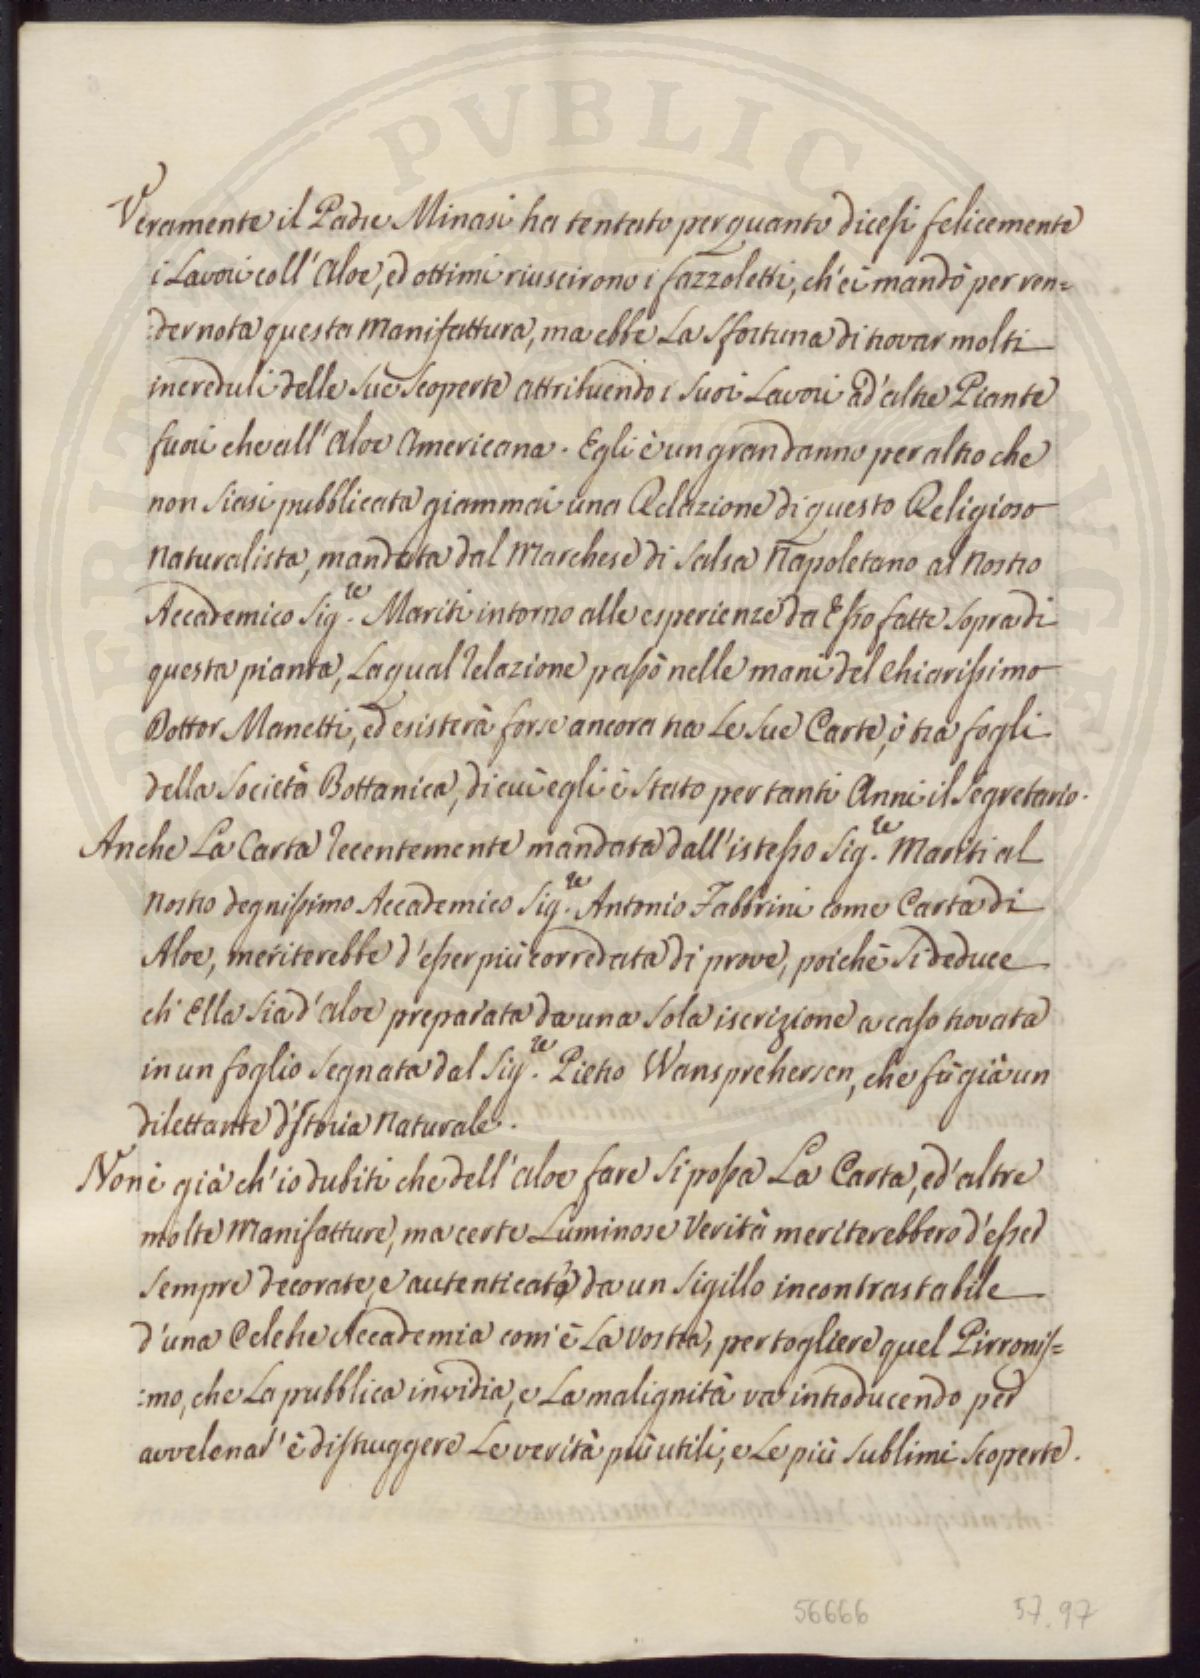 Veramente il Padre Minasi ha tentato per quanto dicesi felicemente
i Lavori coll' Aloe, ed ottimi riuscirono i fazzoletti, ch'ei mandò per ren=
:der nota questa Manifattura, ma ebbe La Sfortuna di trovar molti
increduli delle Sue Scoperte attribuendo i Suoi Lavori ad' altre Piante
fuori che all' Aloe Americana. Egli è un gran danno per altro che
non Siasi pubblicata giammai una Relazione di questo Religioso
Naturalista, mandata dal Marchese di Salsa Napoletano al Nostro
Accademico Sig.re Mariti intorno alle esperienze da Esso fatte Sopra di
questa pianta, La qual Relazione passò nelle mani del Chiarissimo
Dottor Manetti, ed esisterà forse ancora tra Le Sue Carte, ò tra fogli
della Società Bottanica, di cui egli è Stato per tanti Anni il Segretario.
Anche La Carta recentemente mandata dall'istesso Sig.re Mariti al
Nostro degnissimo Accademico Sig.re Antonio Fabbrini come Carta di
Aloe, meriterebbe d'esser più corredata di prove, poichè Si deduce
ch' Ella Sia d' Aloe preparata da una Sola iscrizione a caso trovata
in un foglio Segnata dal Sig.re Pietro Wansprehersen, che fù già un
dilettante d'Istoria Naturale.
Non è già ch' io dubiti che dell' Aloe fare Si possa La Carta, ed' altre
molte Manifatture, ma certe Luminose Verità meriterebbero d'esser
Sempre decorate, e autenticate da un Sigillo incontrastabile
d'una Celebre Accademia com' è La vostra, per togliere quel Pirronis=
:mo, che La pubblica invidia, e La malignità va introducendo per
avvelenar' è distruggere Le verità più utili, e Le più Sublimi Scoperte.
56666
57.97
PVBLICAE